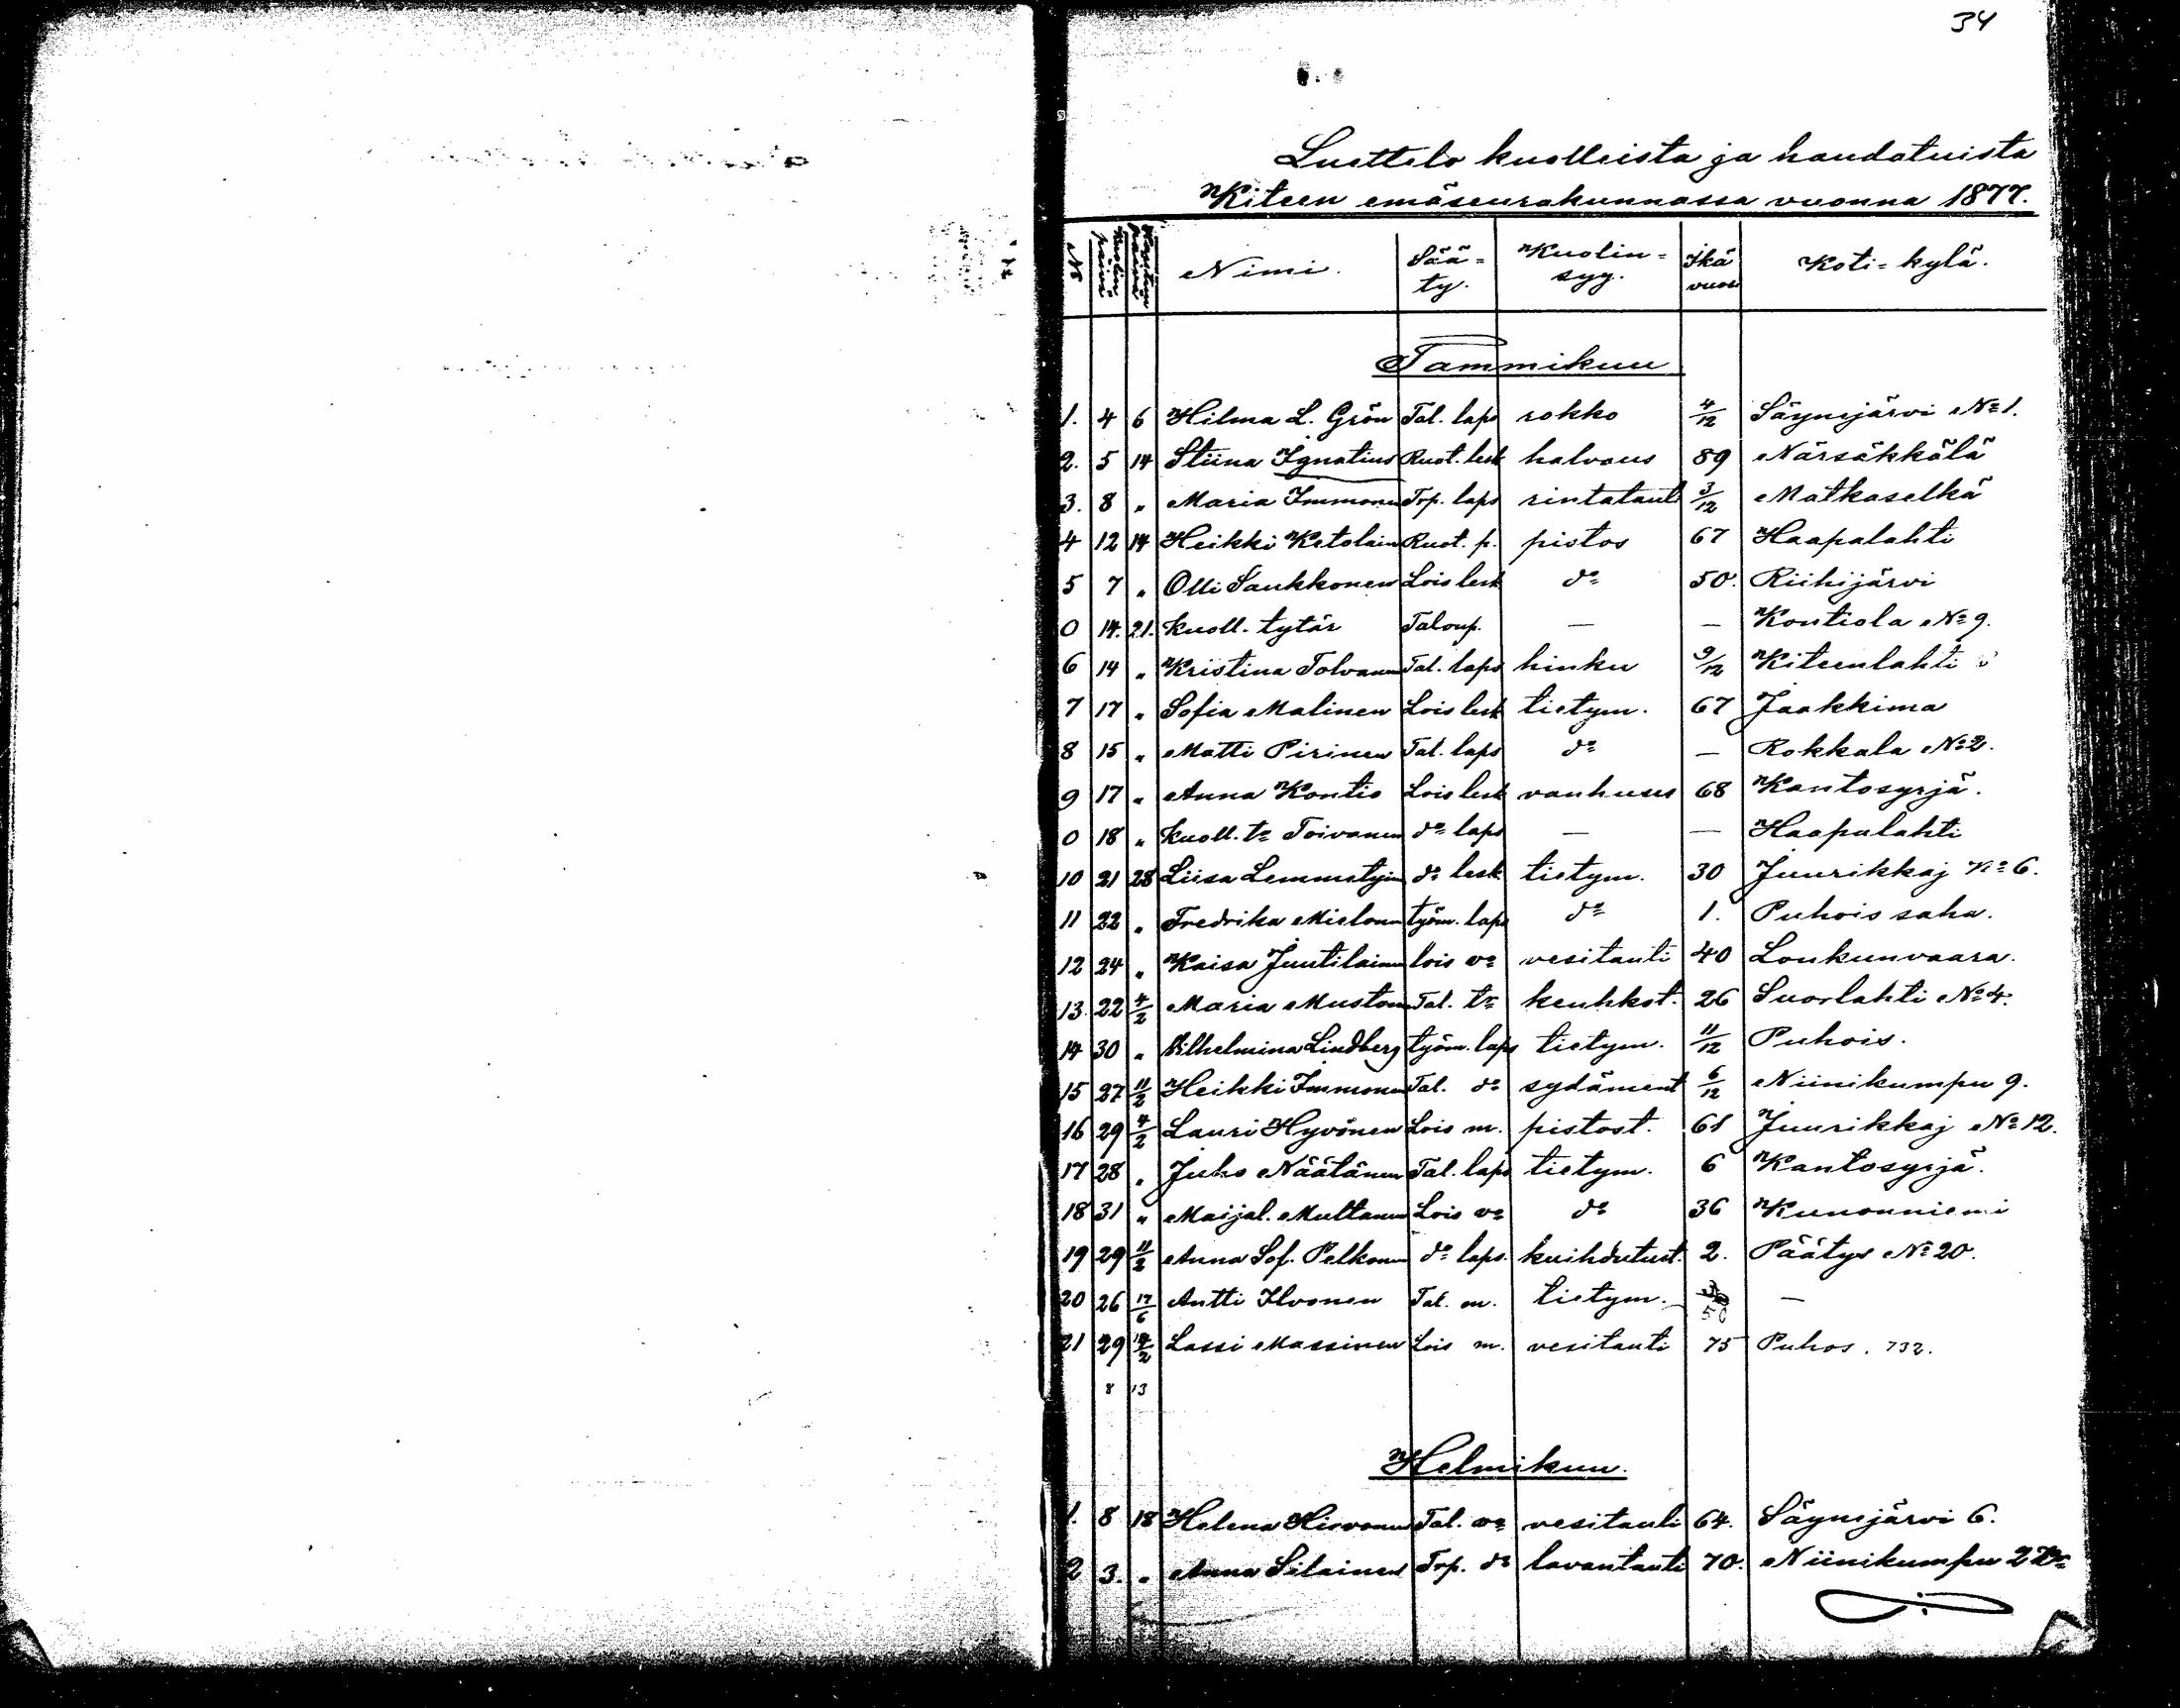 34
Luettelo kuolleista ja haudatuista
Kiteen emäseurakunnassa vuonna 1877.
No Kuolin= päivä Nimi. Sää= ty. Kuolin= syy. Ikä vuosi Koti=kylä.
Tammikuu
1. 4 6 Hilma L. Grön Tal. laps rokko 4/12 Säynejärvi No 1.
2. 5 14 Stiina Ignatius Ruot. lesk halvaus 89 Närsäkkälä
3. 8 " Maria Immonen Trp. laps rintataut 3/12 Matkaselkä
4 12 14 Heikki Ketolain Ruot. p. pistos 67 Haapalahti
5 7 " Olli Saukkonen Lois lesk do 50. Riihijärvi
0 14. 21. kuoll. tytär Taloup. — — Kontiola No 9.
6 14 " Kristina Tolvanen Tal. laps hinku 9/12 Kiteenlahti
7 17 " Sofia Malinen Lois lesk tietym. 67 Jaakkima
8 15 " Matti Pirinen Tal. laps do — Rokkala No 2.
9 17 " Anna Kontio Lois lesk vanhuus 68 Kantosyrjä.
0 18 " kuoll. to Toivanen do laps — — Haapalahti
10 21 28 Liisa Lemmetyin do lesk. tietym. 30 Juurikkaj No 6.
11 22 " Fredrika Mielonen työm. laps do 1. Puhois saha.
12 24 " Kaisa Juutilainen lois vo vesitauti 40 Loukunvaara.
13. 22 4/2 Maria Muston Tal. tr keuhkot. 26 Suorlahti No 4.
14 30 " Vilhelmina Lindberg työm. laps tietym. 11/12 Puhois.
15 27 11/2 Heikki Immonen Tal. do sydäment 6/12 Niinikumpu 9.
16 29 4/2 Lauri Hyvönen Lois m. pistost. 61 Juurikkaj No 12.
17 28 " Juho Näätänen Tal. laps tietym. 6 Kantosyrjä.
18 31 " Maijal. Multanen Lois vo do 36 Kunonniemi
19 29 11/2 Anna Sof. Pelkonen do laps. kuihdutust. 2. Päätys No 20.
20 26 17/6 Antti Ilvonen Tal. m. tietym. 50 —
21 29 18/2 Lassi Massinen Lois m. vesitauti 75 Puhos. 732.
8 13
Helmikuu.
1. 8 18 Helena Hirvonen Tal. vo vesitauti 64. Säynejärvi 6.
2 3. " Anna Silainen Trp. do lavantauti 70. Niinikumpu 2